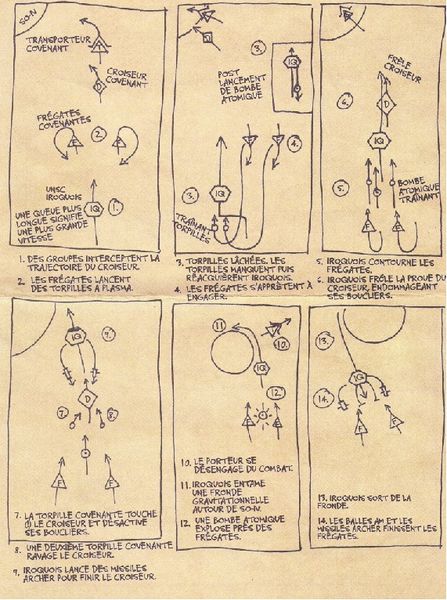 SO-N
TRANSPORTEUR
COVENANT
CROISEUR
COVENANT
FRÉGATES
COVENANTES
2.
F
F
D
UNSC
IROQUOIS
UNE QUEUE PLUS
LONGUE SIGNIFIE
UNE PLUS GRANDE
VITESSE
IQ
1.
1. DES GROUPES INTERCEPTENT LA
TRAJECTOIRE DU CROISEUR.
2. LES FRÉGATES LANCENT
DES TORPILLES À PLASMA.
D
3.
IQ
POST
LANCEMENT
DE BOMBE
ATOMIQUE
F
F
4.
3.
IQ
TRAÎNANT
TORPILLES
3. TORPILLES LÂCHÉES. LES
TORPILLES MANQUENT PUIS
RÉACQUIÈRENT IROQUOIS.
4. LES FRÉGATES S'APPRÊTENT À
ENGAGER.
FRÊLE
CROISEUR
6.
D
IQ
BOMBE
ATOMIQUE
TRAÎNANT
5.
F
F
5. IROQUOIS CONTOURNE LES
FRÉGATES.
6. IROQUOIS FRÔLE LA PROUE DU
CROISEUR, ENDOMMAGEANT
SES BOUCLIERS.
IQ
9.
D
7.
8.
F
F
7. LA TORPILLE COVENANTE TOUCHE
LE CROISEUR ET DÉSACTIVE
SES BOUCLIERS.
8. UNE DEUXIÈME TORPILLE COVENANTE
RAVAGE LE CROISEUR.
9. IROQUOIS LANCE DES MISSILES
ARCHER POUR FINIR LE CROISEUR.
11.
10.
IQ
12.
F
F
10. LE PORTEUR SE
DÉSENGAGE DU COMBAT.
11. IROQUOIS ENTAME
UNE FRONDE
GRAVITATIONNELLE
AUTOUR DE SO-N.
12. UNE BOMBE ATOMIQUE
EXPLOSE PRÈS DES
FRÉGATES.
13.
IQ
14.
F
F
13. IROQUOIS SORT DE LA
FRONDE.
14. LES BALLES AM ET LES
MISSILES ARCHER FINISSENT LES
FRÉGATES.